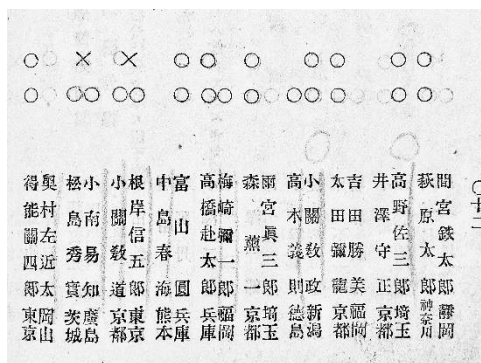 間宮鉄太郎靜岡
荻原太郎神奈川
高野佐三郎埼玉
井澤守正京都
吉田勝美福岡
太田彌龍京都
小關敎政新潟
高木義則徳島
雨宮眞三郎埼玉
森薫一京都
梅崎彌一郎福岡
高橋赳太郎兵庫
富山圓兵庫
中島春海熊本
根岸信五郎東京
小關敎道京都
小南易知廣島
松島秀實茨城
奥村左近太岡山
得能關四郎東京